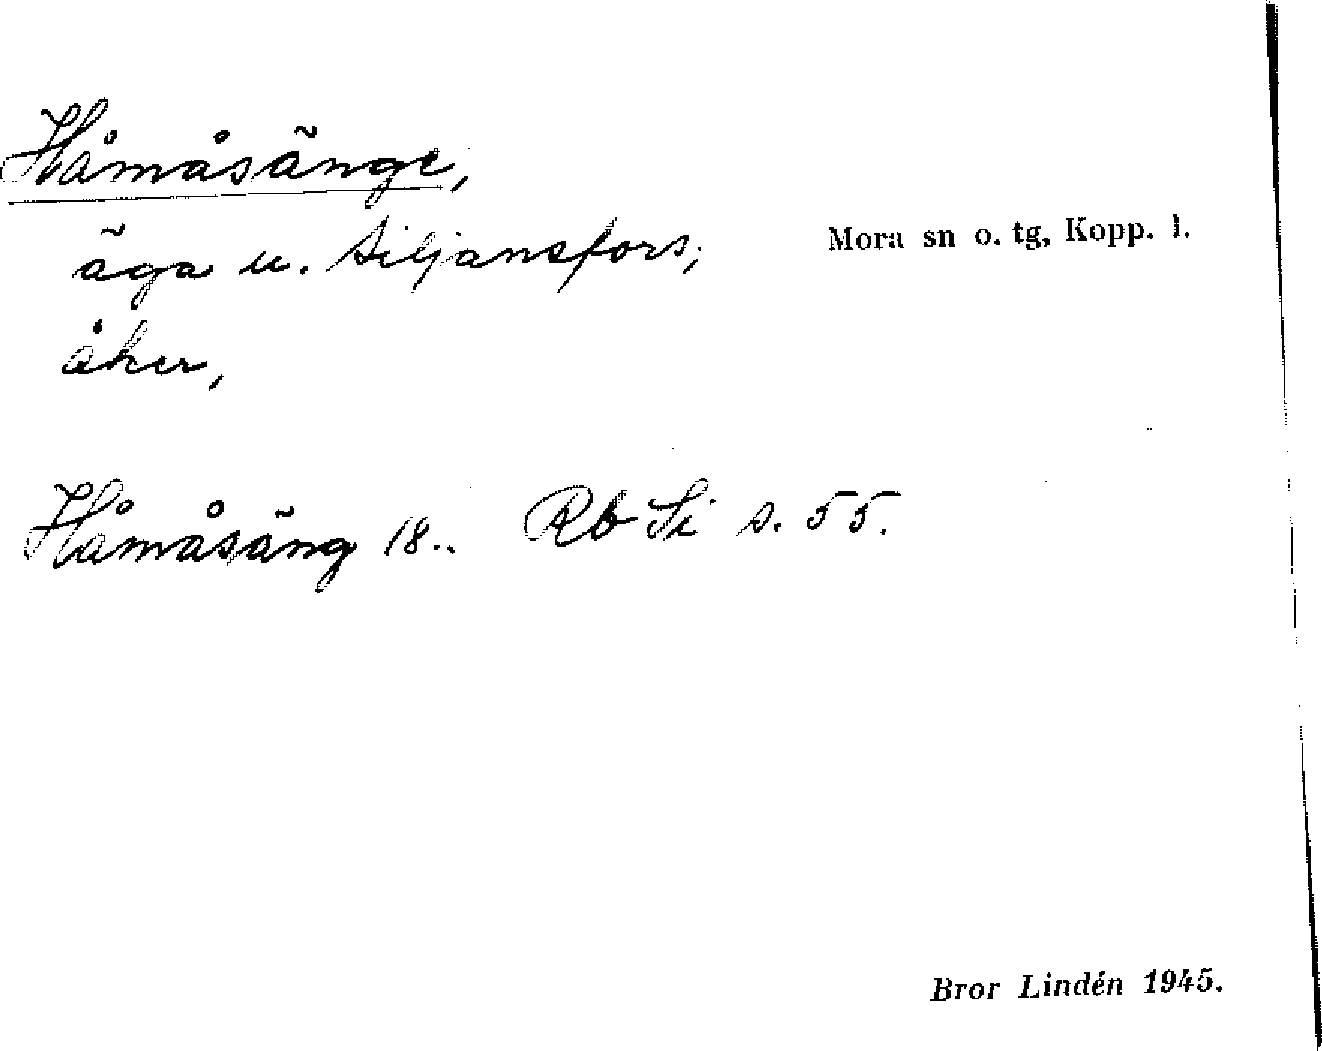 Håmåsänge,
äga u. Siljansfors;
Mora sn o. tg, Kopp. l.
åker,
Håmåsäng 18.. Rb Si s. 55.
Bror Lindén 1945.